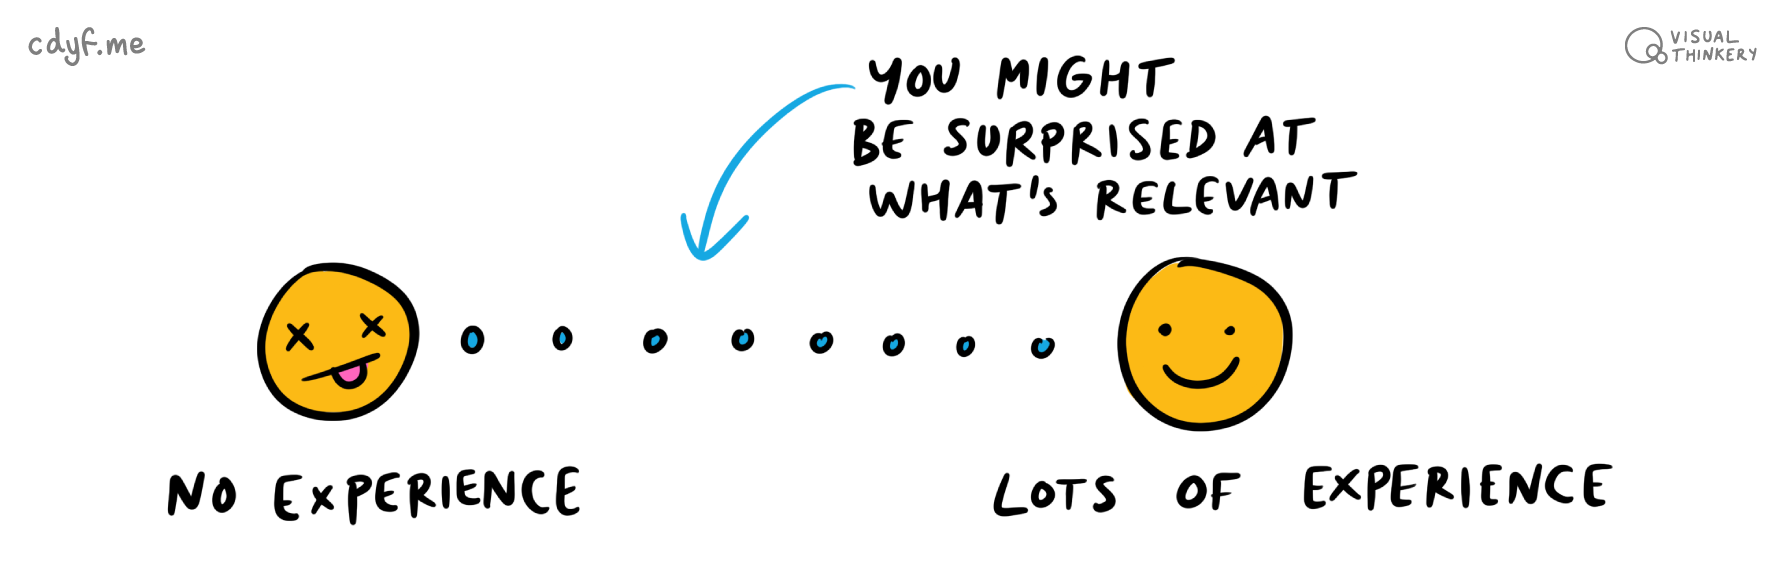 cdyf.me
VISUAL
THINKERY
YOU MIGHT
BE SURPRISED AT
WHAT'S RELEVANT
NO EXPERIENCE
LOTS OF EXPERIENCE